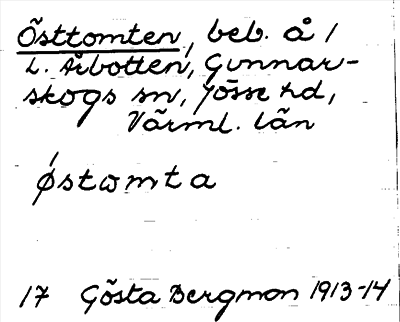 Östtomten, beb. å 1/
L. Årbotten, Gunnar-
skogs sn, Jösse hd,
Värml. län
østωmta
17 Gösta Bergman 1913-14